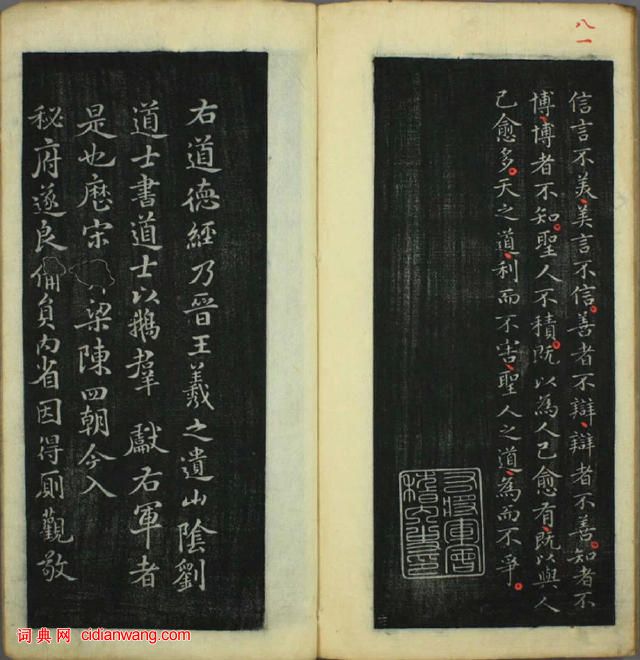 八一
信言不美、美言不信。善者不辯、辯者不善。知者不
博、博者不知。聖人不積。既以為人己愈有、既以與人
己愈多。天之道、利而不害、聖人之道、為而不爭。
右道德經乃晉王羲之遺山陰劉
道士書道士以鵝羣獻右軍者
是也歷宋梁陳四朝今入
秘府遂良備員內省因得厠觀敬
词典网 cidianwang.com